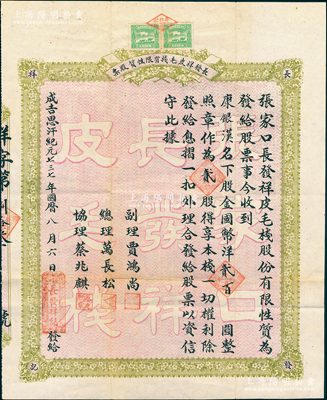 長發祥皮毛棧有限性質股票
長
祥
發
記
張家口長發祥皮毛棧股份有限性質為
發給股票事今收到
康銀漢名下股金國幣洋貳百圓整
照章作為貳股得享本棧一切權利除
發給息摺一扣外理合發給股票以資信
守此據
副理賈鴻尚
總理萬長松
協理蔡兆麒
成吉思汗紀元七三七年國曆八月六日
發給
祥字第
號